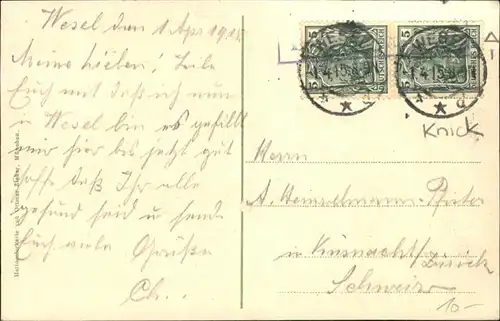 Wesel den 1 Apr 1915
Meine Lieben! Teile
Euch mit daß ich nun
in Wesel bin es gefällt
mir hier bis jetzt gut
hoffe daß Ihr alle
gesund seid u sende
Euch viele Grüße
Ch...
5 5
WESEL
1.4.15
Knick
Herrn
A. Heinzelmann-Pfister
in Küsnacht/Zürich
Schweiz
10-